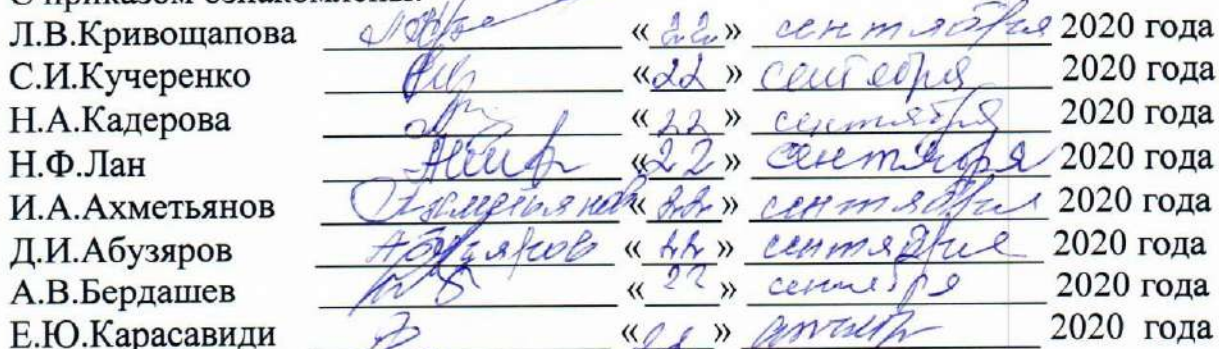 С приказом ознакомлены:
Л.В.Кривощапова «22» сентября 2020 года
С.И.Кучеренко «22» сентября 2020 года
Н.А.Кадерова «22» сентября 2020 года
Н.Ф.Лан «22» сентября 2020 года
И.А.Ахметьянов Ахметьянов «22» сентября 2020 года
Д.И.Абузяров Абузяров «22» сентября 2020 года
А.В.Бердашев «22» сентября 2020 года
Е.Ю.Карасавиди «22» 2020 года